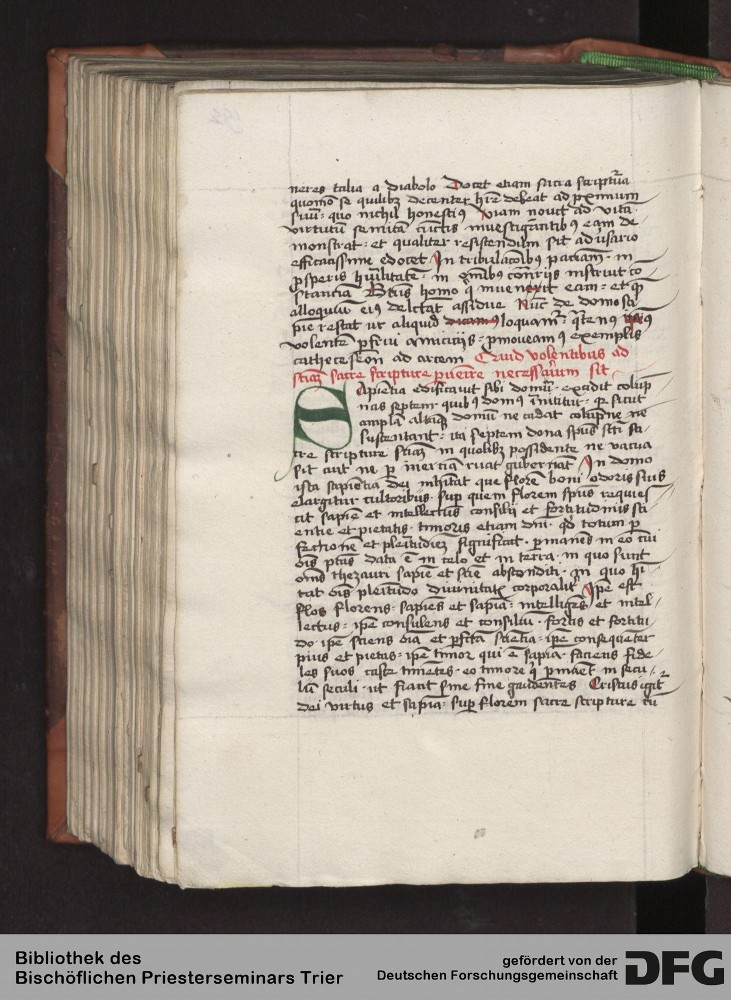 neres talia a diabolo Docet etiam sacra scriptura
quomo se quilibz decenter hre debeat ad pximum
suu quo nichil honestius viam nouit ad vita
virtutu semita cunctis inuestigantibus eam de
monstrat et qualiter resistendum sit aduersario
efficacissime edocet In tribulacoibus paciam in
psperis humilitate in omibus contrijs instruit co
stancia Btus homo qi inuenerit eam et qi
alloquiu eius delectat assidue Nuc de domo sa
pie restat ut aliquid loquamr
volente pfrui amicicijs pmoueam exemplis
ad arcem Quid volentibus ad
sciaz sacre scripture puenire necessarium sit
Sapientia edificauit sibi domu excidit colup
nas septem quibus domus innititur qr sicut
ampla altaqz domu ne cadat colupne
sustentant ita septem dona spus scti sa
cre scripture sciaz in quolibz possidente ne vacua
sit aut ne p inertia ruat gubernat In domo
ista sapientia dei inhitat que flore boni odoris suis
elargitur cultoribus sup quem florem spus requies
cit sapie et intellectus consilij et fortitudinis sci
entie et pietatis timoris etiam dni qd totum p
fectione et plenitudiez significat pmanes in eo cui
ois ptas data e in celo et in terra in quo sunt
oms thezauri sapie et scie absconditi in quo hi
tat ois plenitudo diuinitatis corporalitr Ipe est
flos florens sapies et sapia intelliges et intel
lectus ipe consulens et consiliu fortis et fortitu
do ipe sciens oia et pfcta scietia ipe consequeter
pius et pietas ipe timor qui e sapia faciens fide
les suos caste timetes eo timore qi pmaet in secu
lu seculi ut fiant sine fine gaudentes Cristus igitr
dei virtus et sapia sup florem sacre scripture cu
Bibliothek des
Bischöflichen Priesterseminars Trier
gefördert von der
Deutschen Forschungsgemeinschaft
DFG